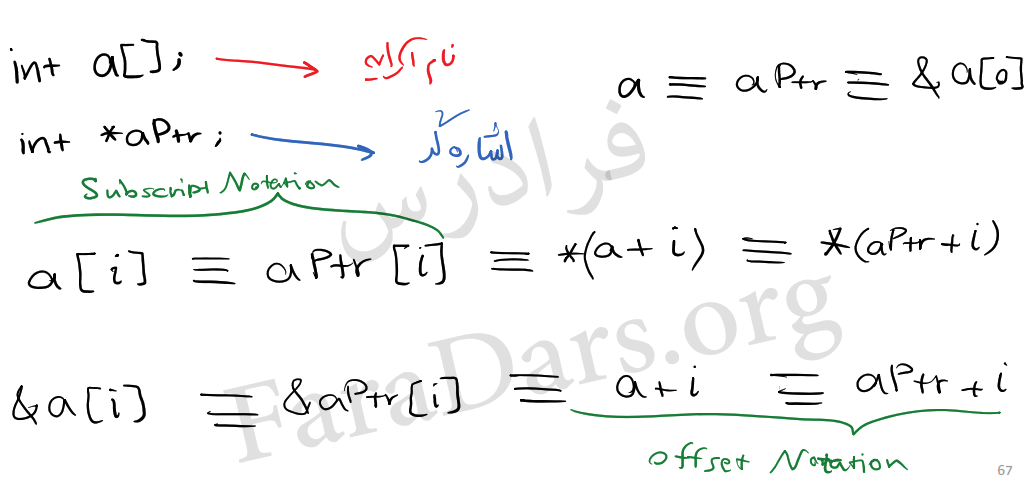 int a[]; → نام آرایه
a ≡ aPtr ≡ &a[0]
int *aPtr; → اشاره گر
Subscript Notation
a[i] ≡ aPtr[i] ≡ *(a+i) ≡ *(aPtr+i)
&a[i] ≡ &aPtr[i] ≡ a+i ≡ aPtr+i
offset Notation
فرادرس
FaraDars.org
67